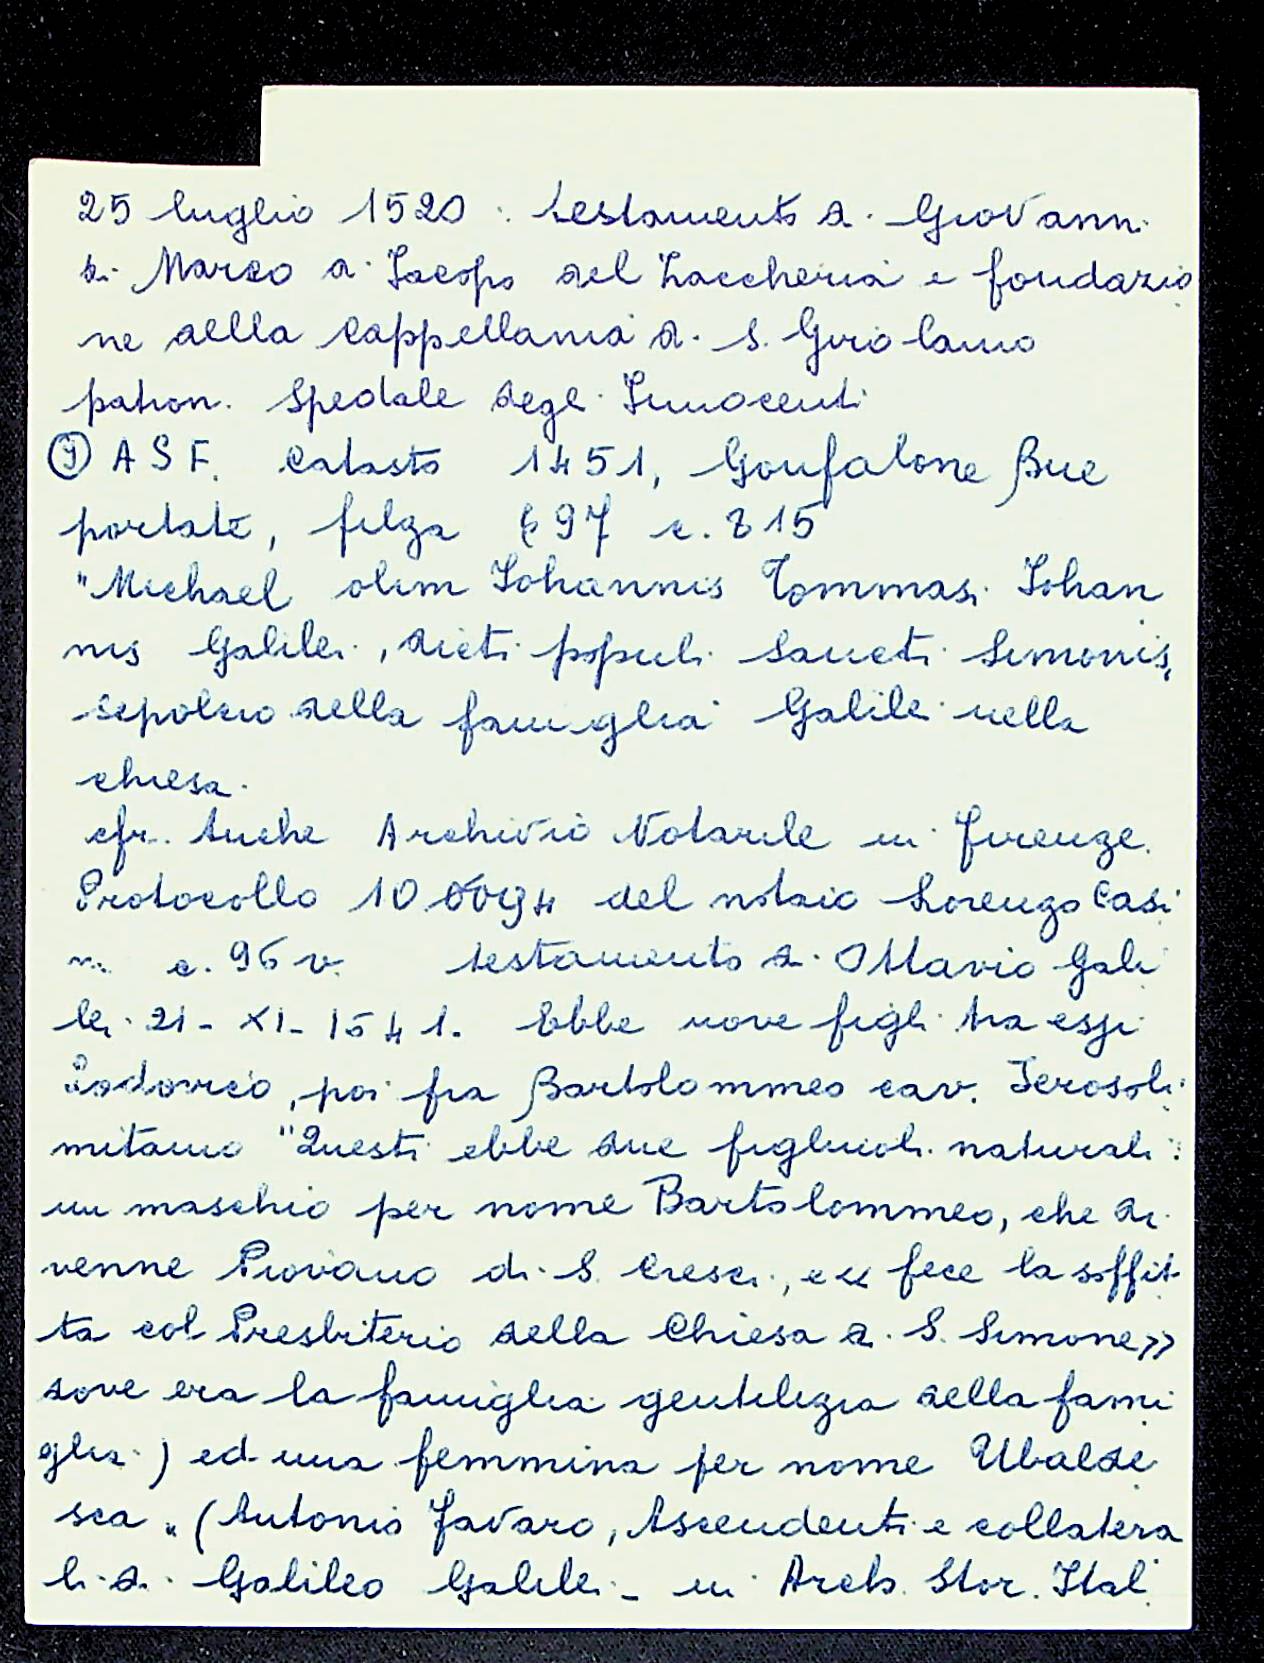 25 luglio 1520 : testamento di Giovanni
di Marco di Iacopo del Zaccheria e fondazio
ne della cappellania di S. Girolamo
patron. Spedale degli Innocenti
⑨ A S F. Catasto 1451, Gonfalone Bue
portate, filza 697 c. 815
"Michael olim Iohannis Tommasi Iohan
nis Galilei, dicti populi Sancti Simonis,
sepolcro della famiglia Galilei nella
chiesa.
cfr. Anche Archivio Notarile in Firenze.
Protocollo del notaio Lorenzo Casi
ni c. 96 v. testamento di Ottavio Gali
lei 21-XI-1541. Ebbe nove figli tra essi
Lodovico, poi fra Bartolommeo cav. Ierosoli
mitano "Questi ebbe due figliuoli naturali:
un maschio per nome Bartolommeo, che di
venne Piovano di S. Cresci, e fece la soffit
ta col Presbiterio della Chiesa di S. Simone»
dove era la famiglia gentilizia della fami
glia) ed una femmina per nome Ubalde
sca" (Antonio Favaro, Ascendenti e collatera
li di Galileo Galilei - in Arch. Stor. Ital.